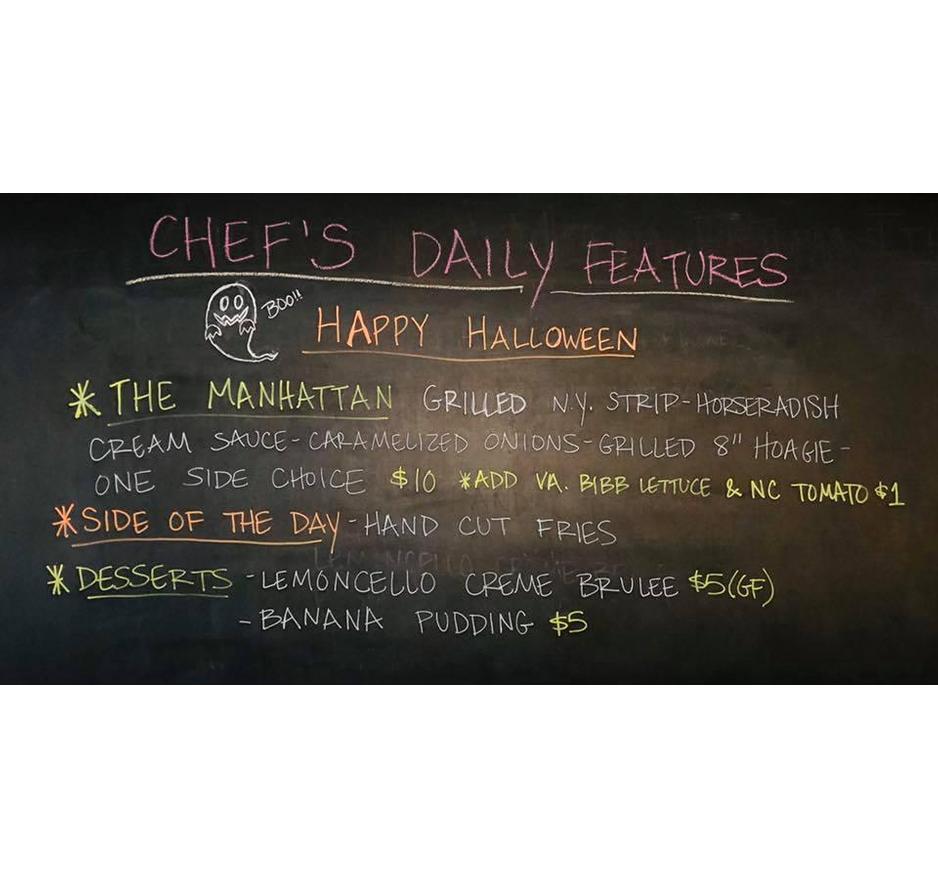 CHEF'S DAILY FEATURES
BOO!!
HAPPY HALLOWEEN
* THE MANHATTAN GRILLED N.Y. STRIP-HORSERADISH
CREAM SAUCE-CARAMELIZED ONIONS-GRILLED 8" HOAGIE-
ONE SIDE CHOICE $10 *ADD VA. BIBB LETTUCE & NC TOMATO $1
* SIDE OF THE DAY-HAND CUT FRIES
* DESSERTS -LEMONCELLO CREME BRULEE $5(GF)
-BANANA PUDDING $5